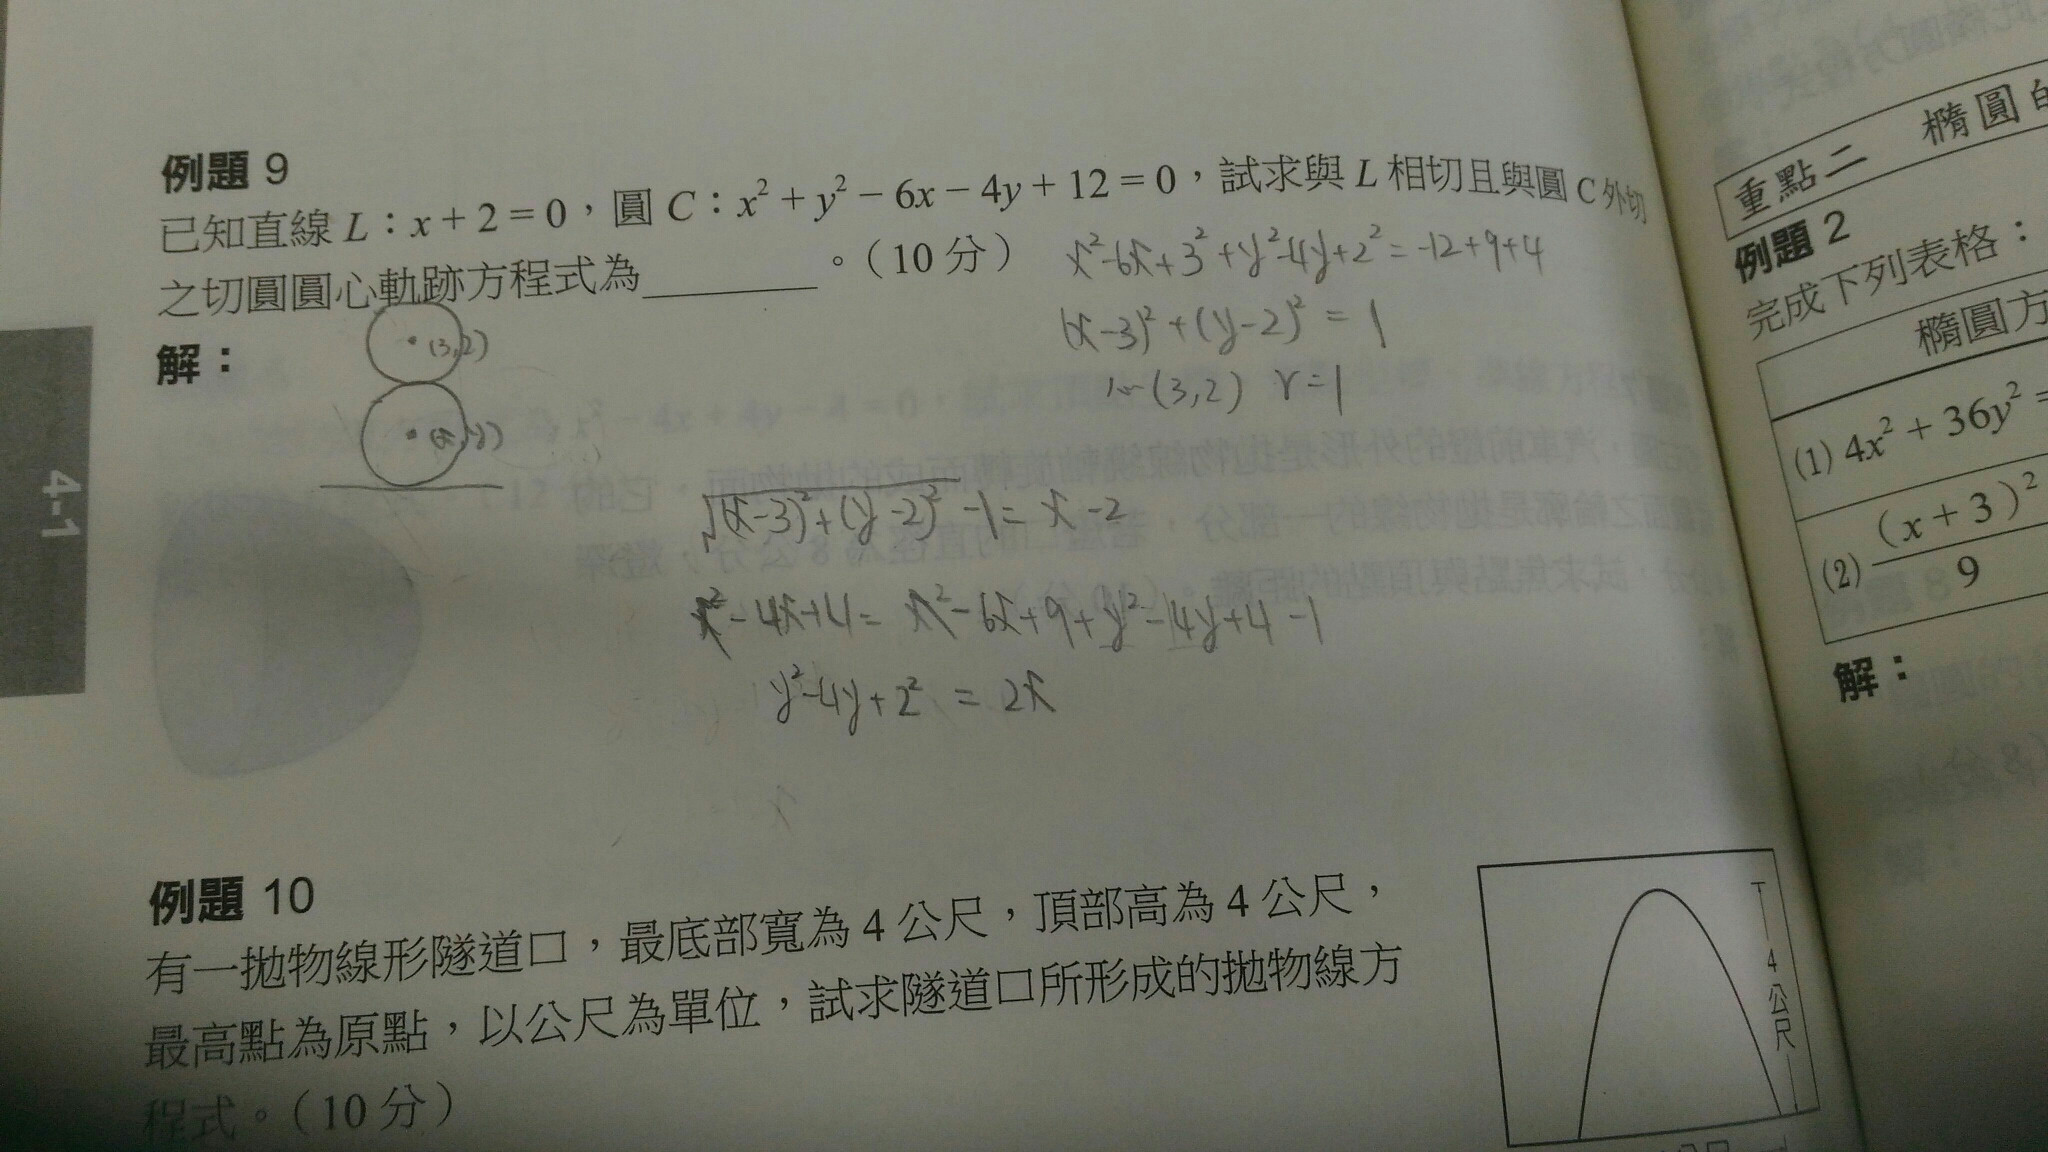 例題 9
已知直線 L：x + 2 = 0，圓 C：x² + y² − 6x − 4y + 12 = 0，試求與 L 相切且與圓 C 外切
之切圓圓心軌跡方程式為＿＿＿＿。（10 分）
x²-6x+3²+y²-4y+2²=-12+9+4
(x-3)²+(y-2)²=1
(3,2) r=1
解：
(3,2)
(x,y)
√(x-3)²+(y-2)² -1= x-2
x²-4x+4= x²-6x+9+y²-4y+4-1
y²-4y+2² = 2x
例題 10
有一拋物線形隧道口，最底部寬為 4 公尺，頂部高為 4 公尺，
最高點為原點，以公尺為單位，試求隧道口所形成的拋物線方
程式。（10 分）
4
公
尺
4-1
重點二 橢圓
例題 2
完成下列表格：
橢圓方
(1) 4x² + 36y² =
(2) (x + 3)² / 9
解：